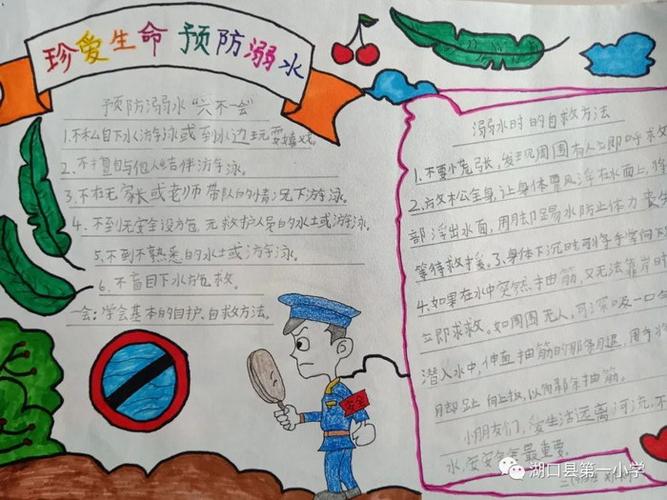 珍爱生命 预防溺水
预防溺水“六不一会”
1.不私自下水游泳或到水边玩耍嬉戏。
2.不擅自与他人结伴游泳。
3.不在无家长或老师带队的情况下游泳。
4.不到无安全设施、无救护人员的水土或游泳。
5.不到不熟悉的水土或游泳。
6.不盲目下水施救。
一会:学会基本的自护、自救方法。
安全
溺水时的自救方法
1.不要慌张,发现周围有人立即呼救
2.放松全身,让身体飘浮在水面上,将
部浮出水面,用脚踢水防止体力丧失
等待救援。3、身体下沉时可将手掌向下
4.如果在水中突然抽筋,又无法靠岸时
立即求救。如周围无人,可深吸一口气
潜入水中,伸直抽筋的那条腿,用手将
脚趾向上扳,以解抽筋。
小朋友们,爱生活远离河流,不
水,安全最重要。
湖口县第一小学